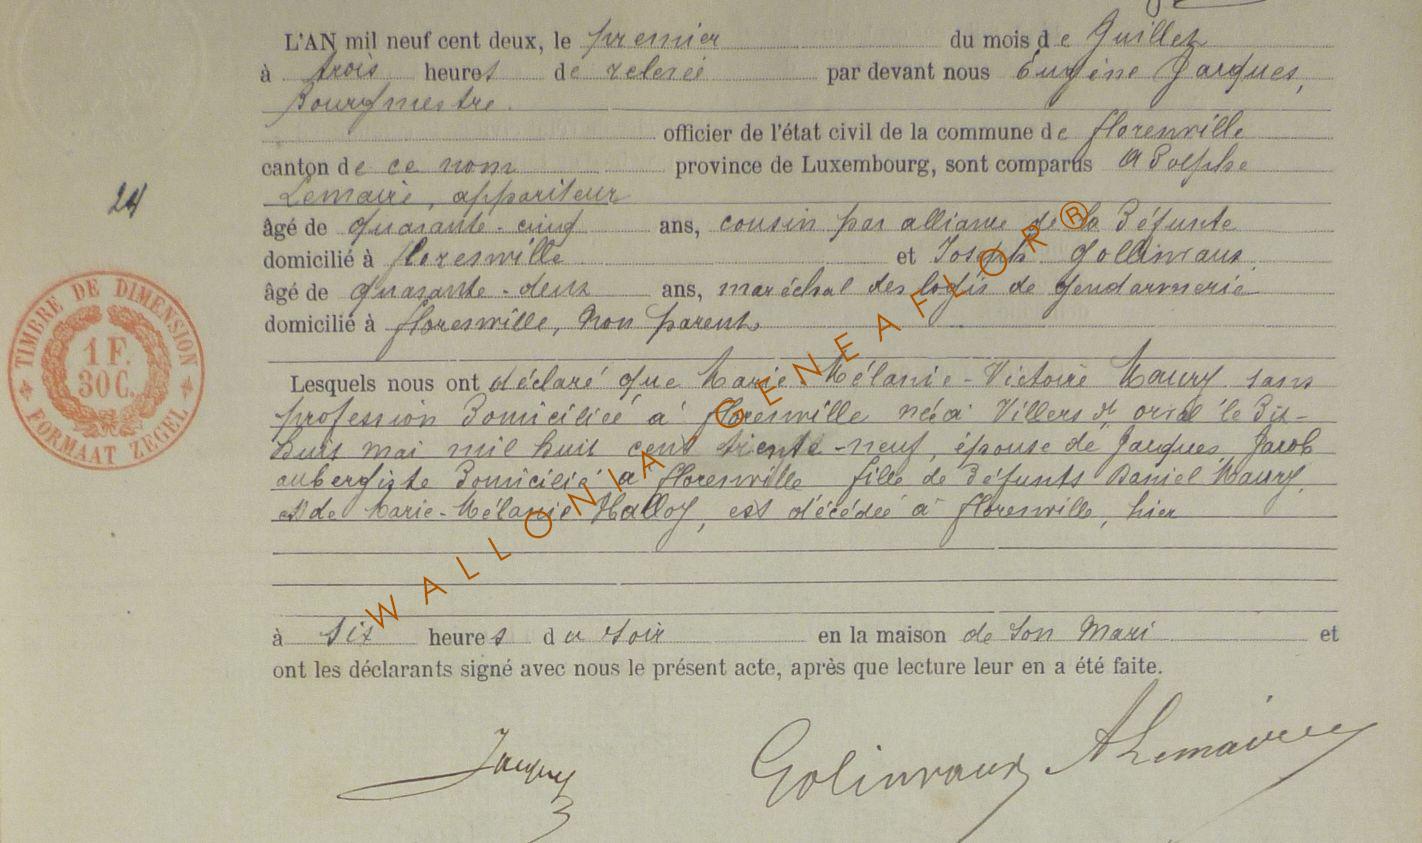 L'AN mil neuf cent deux, le premier du mois de Juillet
à trois heures de relevée par devant nous Eugène Jacques,
Bourgmestre.
officier de l'état civil de la commune de florenville
canton de ce nom province de Luxembourg, sont comparus Adolphe
Lemaire, appariteur
âgé de quarante-cinq ans, cousin par alliance de la défunte
domicilié à florenville et Joseph Gollinvaux,
âgé de quarante-deux ans, maréchal des logis de gendarmerie
domicilié à florenville, non parent,
Lesquels nous ont déclaré que Marie Mélanie-Victoire Maury sans
profession domiciliée à florenville née à Villers dt orval le dix-
huit mai mil huit cent trente-neuf, épouse de Jacques, Jacob
aubergiste domicilié à florenville fille de défunts Daniel Maury,
et de Marie-Mélanie Halloy, est décédée à florenville, hier
à six heures du soir en la maison de son mari et
ont les déclarants signé avec nous le présent acte, après que lecture leur en a été faite.
24
TIMBRE DE DIMENSION
1 F.
30 C.
FORMAAT ZEGEL
WALLONIA GENEAFLOR®
Jacques
Golinvaux
ALemaire